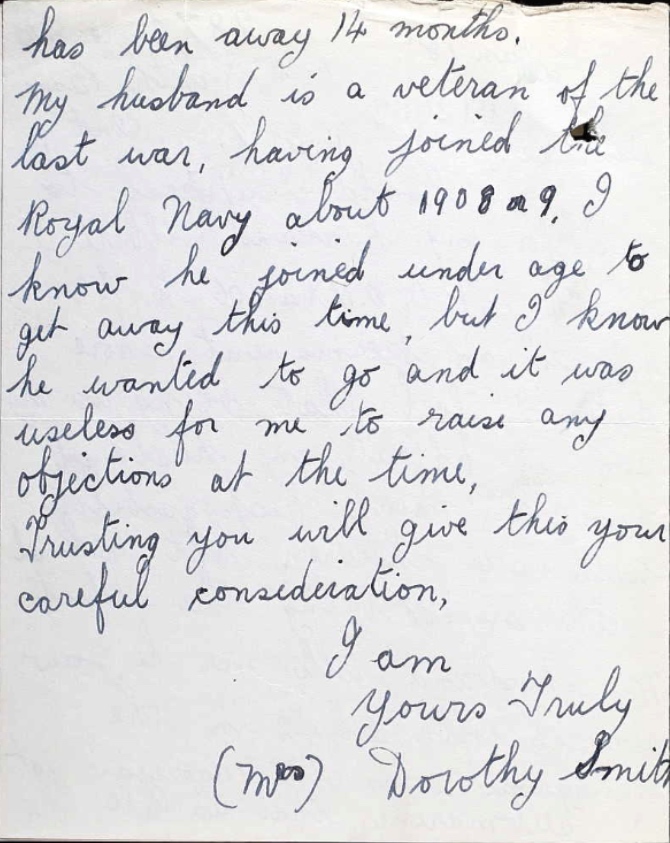 has been away 14 months.
My husband is a veteran of the
last war, having joined the
Royal Navy about 1908 or 9, I
know he joined under age to
get away this time, but I know
he wanted to go and it was
useless for me to raise any
objections at the time,
Trusting you will give this your
careful consideration,
I am
Yours Truly
(Mrs) Dorothy Smith